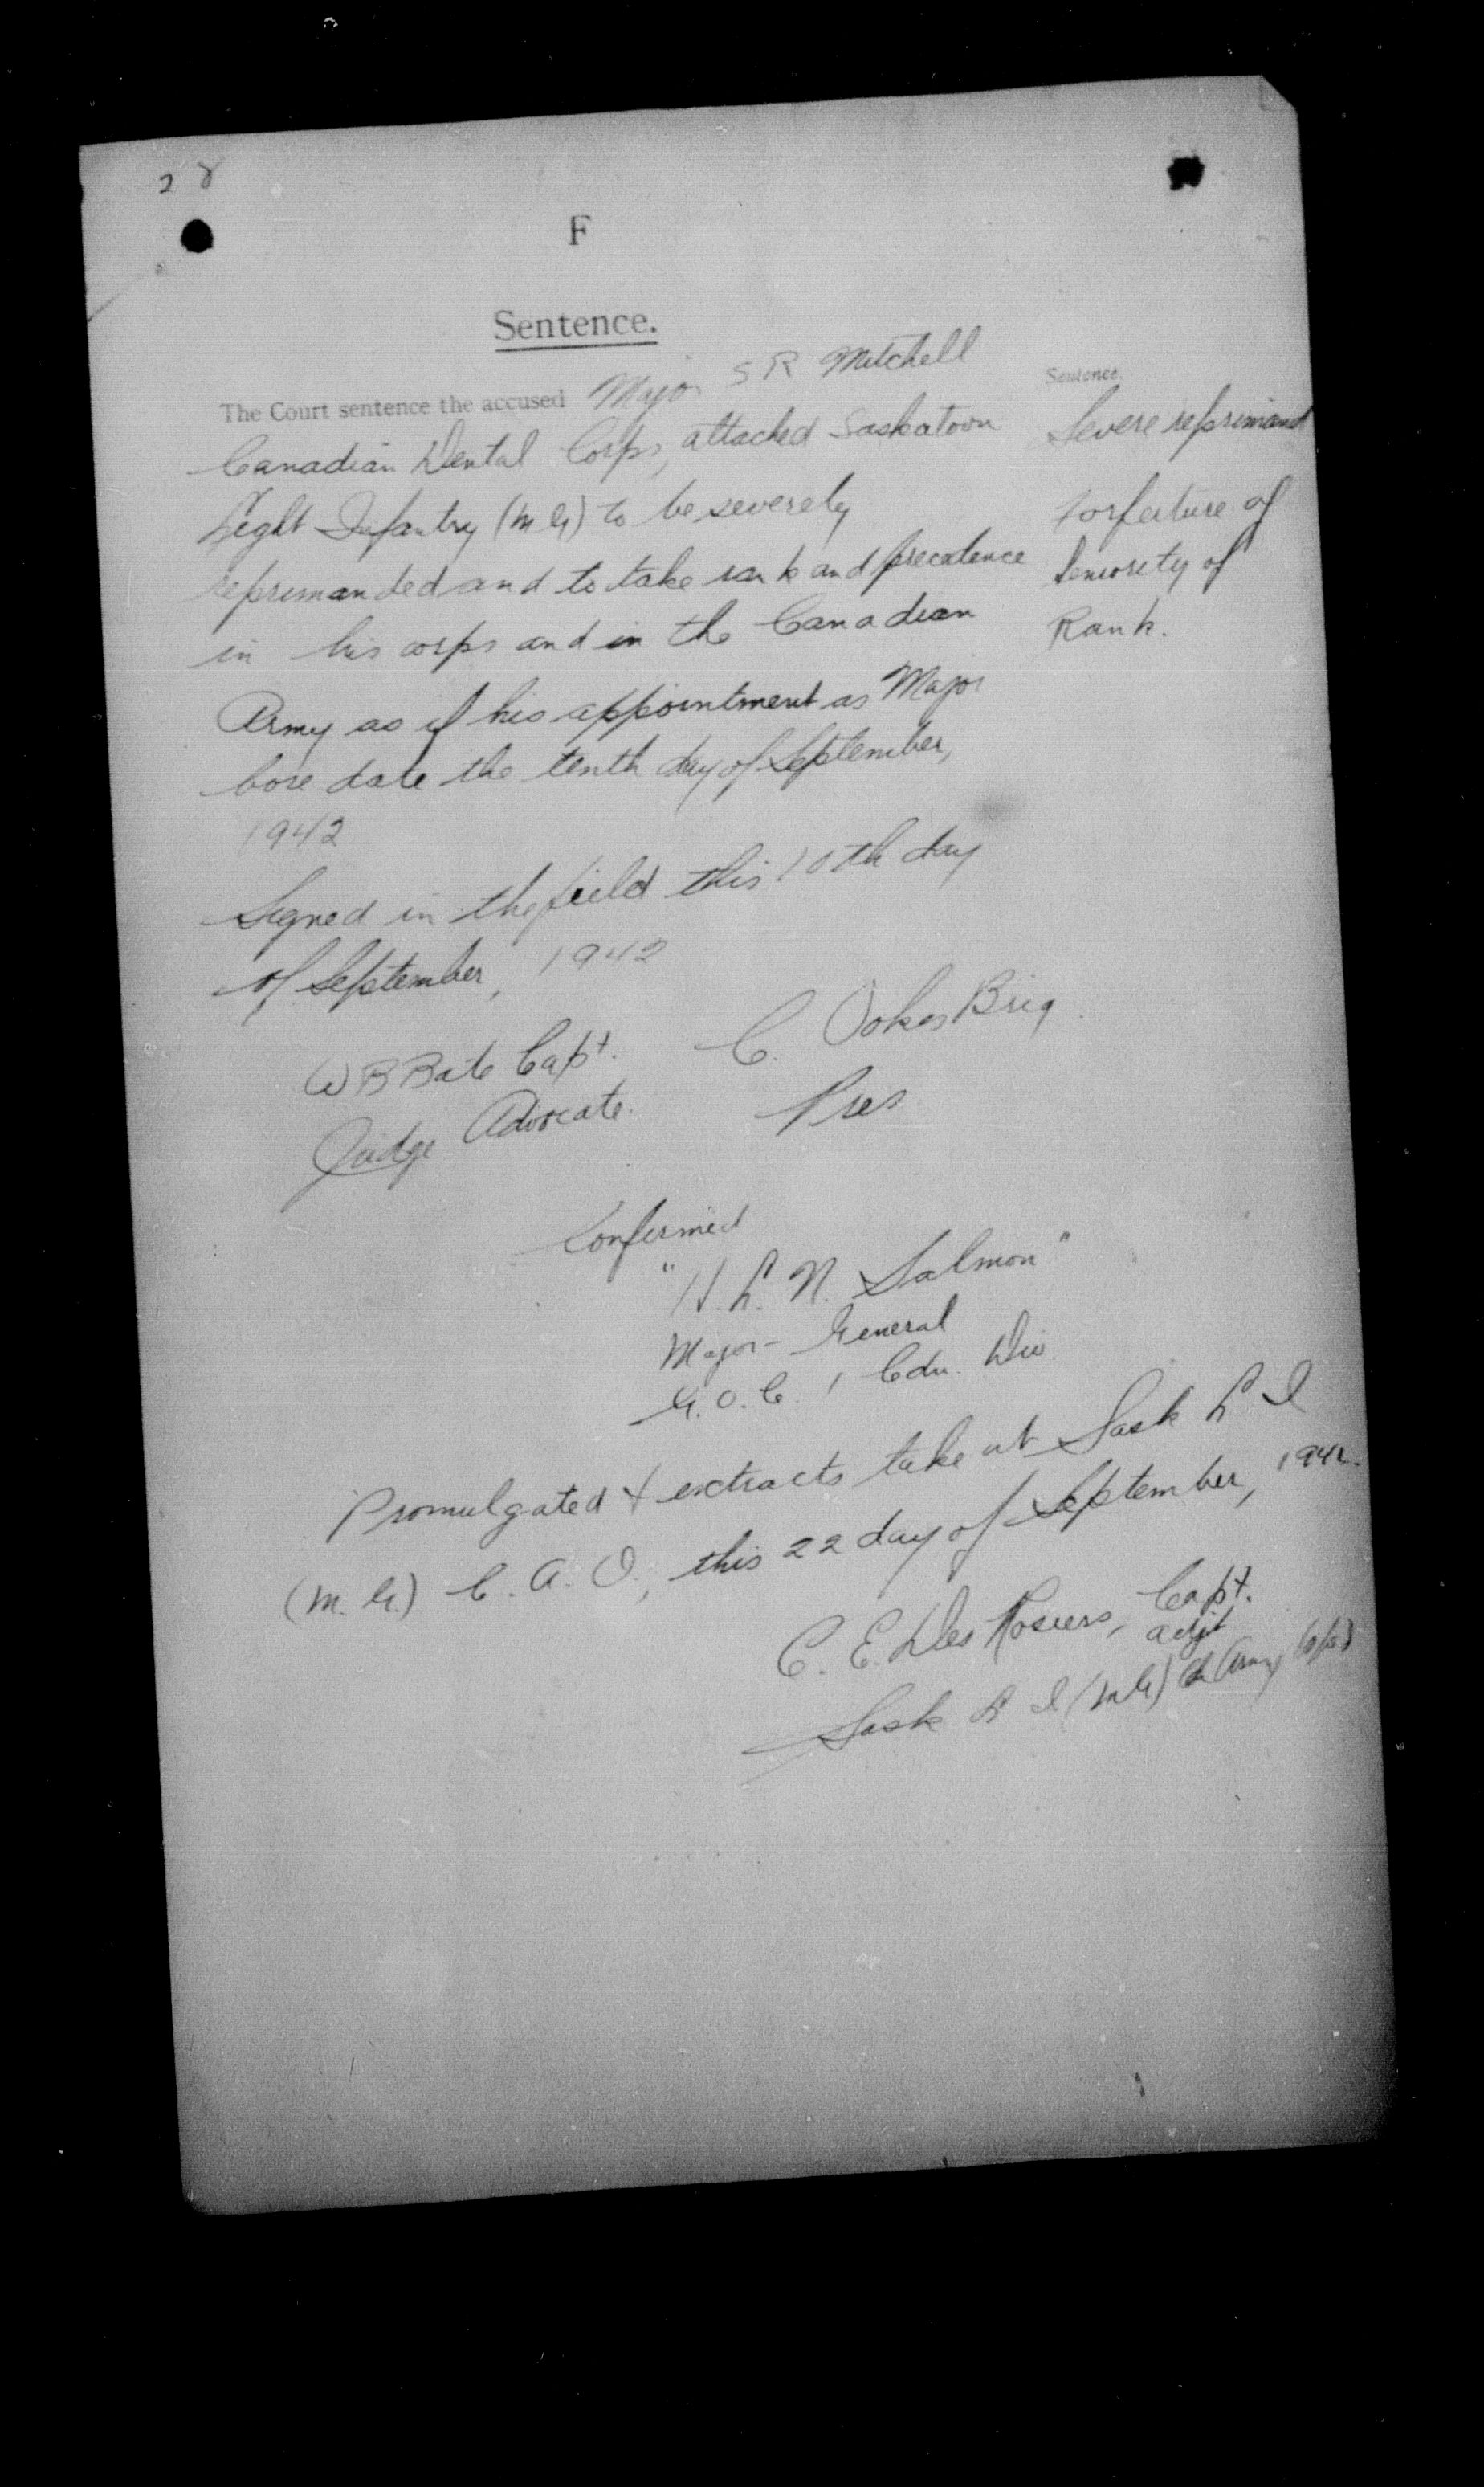 28
F
Sentence.
The Court sentence the accused Major S R Mitchell
Canadian Dental Corps, attached Saskatoon
Light Infantry (M G) to be severely
reprimanded and to take rank and precedence
in his corps and in the Canadian
Army as if his appointment as Major
bore date the tenth day of September,
1942
Sentence.
Severe reprimand
Forfeiture of
Seniority of
Rank.
Signed in the field this 10th day
of September, 1942
W B Bate Capt.
Judge Advocate.
C. Vokes Brig.
Pres
Confirmed
"H. L. N. Salmon"
Major-General
G. O. C. 1 Cdn. Div.
Promulgated & extracts take at Sask L I
(M. G.) C. A. O., this 22 day of September, 1942.
C. E. Des Rosiers, Capt.
adjt
Sask L I (M G) Army